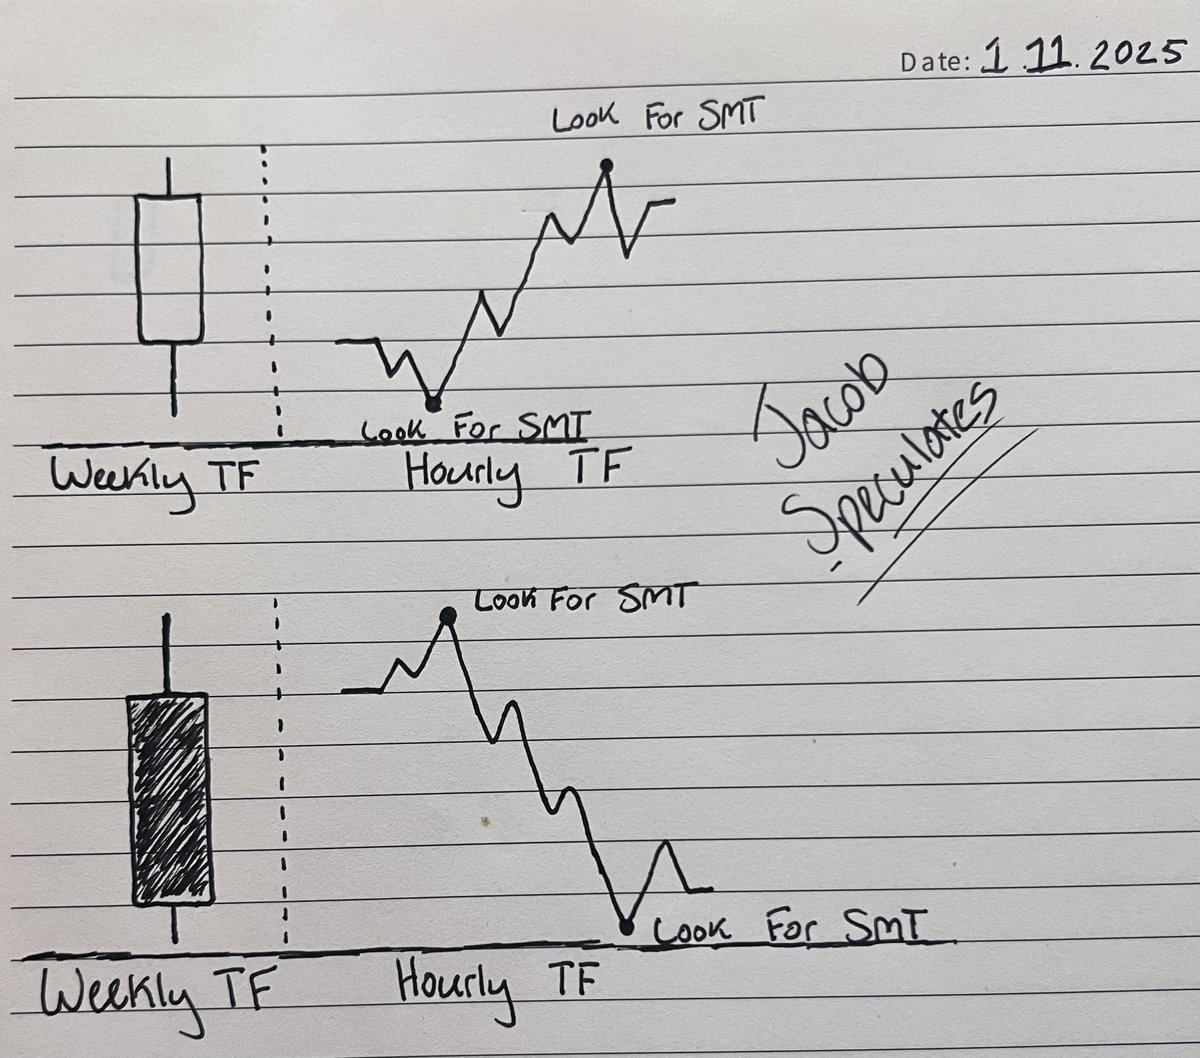 Date: 1.11.2025
Look For SMT
Look For SMT
Weekly TF
Hourly TF
Jacob
Speculates
Look For SMT
Look For SMT
Weekly TF
Hourly TF